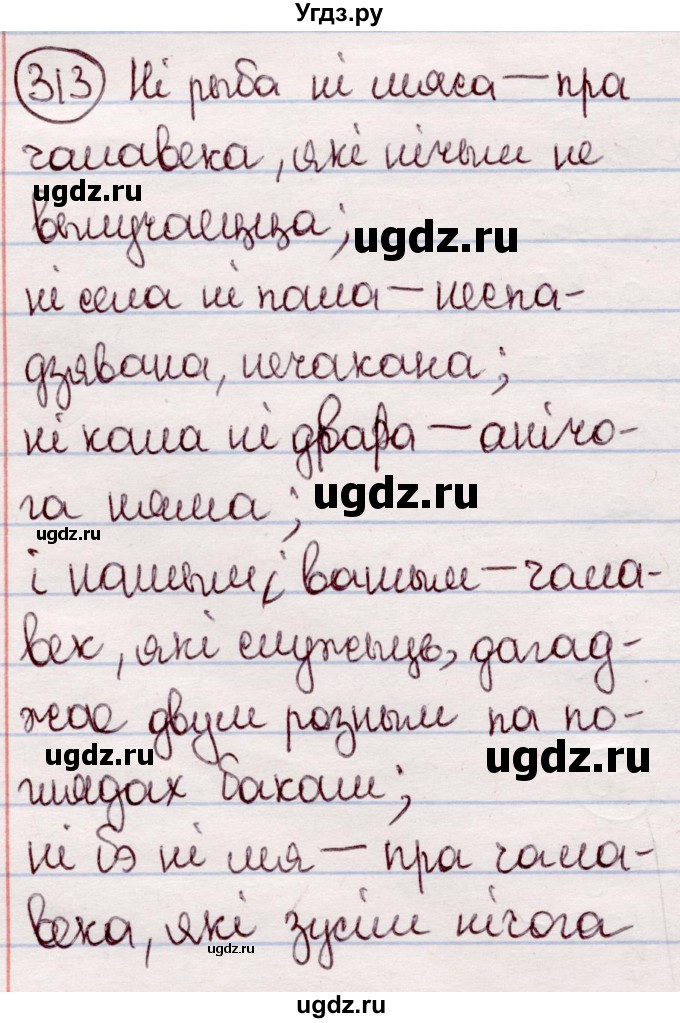 Угдз.ру
313 Ні рыба ні мяса — пра
чалавека, які нічым не
ugdz.ru
вылучаецца;
ugdz.ru
ні села ні пала — неспа-
дзявана, нечакана;
ні кала ні двара — анічо-
га няма;
ugdz.ru
ugdz.ru
і нашым і вашым — чала-
век, які служыць, дагад-
жае двум розным па по-
ugdz.ru
ugdz.ru
глядах бакам;
ні бэ ні мя — пра чала-
века, які зусім нічога
ugdz.ru
ugdz.ru